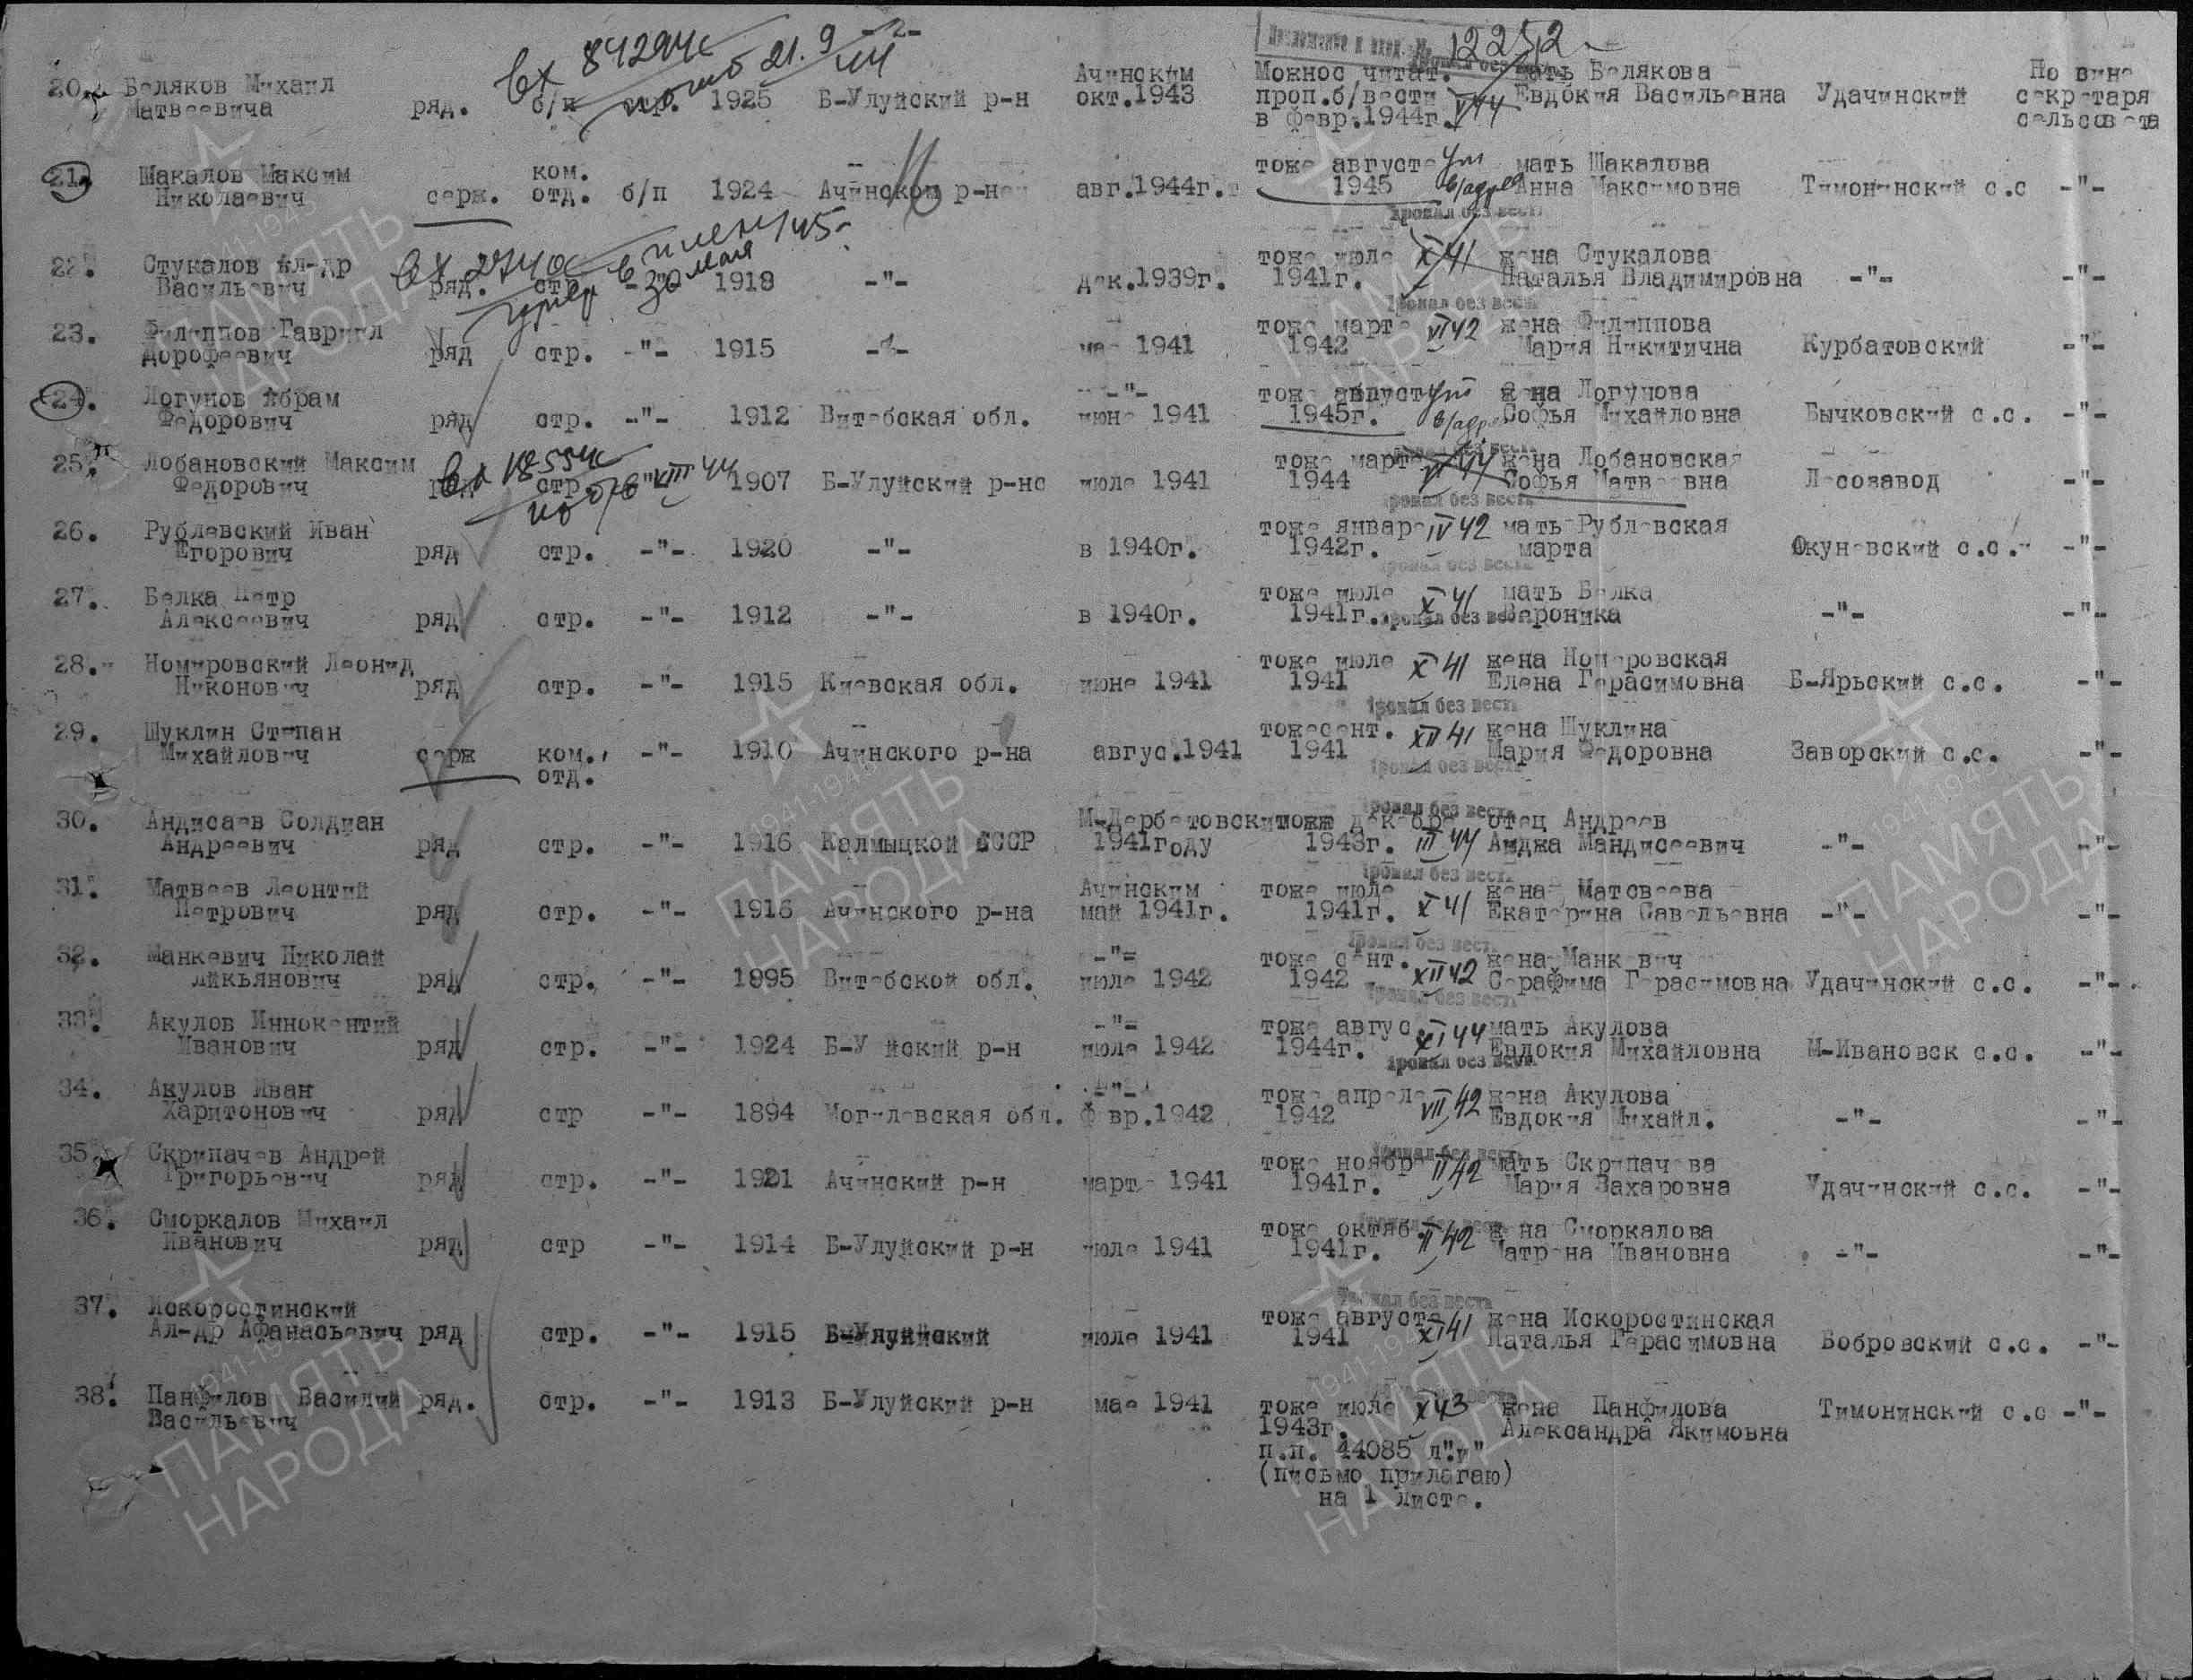 -2-
вх 84294с
погиб 21.9 44
Приложение к вход. № 12252
20. Беляков Михаил Ачинским Можнос читат. мать Белякова По вине
Матвеевича ряд. б/п стр. 1925 Б-Улуйский р-н окт.1943 проп.б/вести VI 44 Евдокия Васильевна Удачинский секретаря
в февр.1944г. сельсовета
21. Шакалов Максим ком. тоже августе мать Шакалова
Николаевич серж. отд. б/п 1924 Ачинском р-не авг.1944г. 1945 Анна Максимовна Тимонинский с.с -"-
Пропал без вести
вх 2740с
умер в плену 30 мая 45
22. Стукалов Ал-др тоже июле X 41 жена Стукалова
Васильевич ряд. стр. -"- 1918 -"- дек.1939г. 1941г. Наталья Владимировна -"- -"-
Пропал без вести
23. Филиппов Гавриил тоже марте VI 42 жена Филиппова
Дорофеевич ряд стр. -"- 1915 -"- мае 1941 1942 Мария Никитична Курбатовский -"-
24. Логунов Абрам -"- тоже август жена Логунова
Федорович ряд стр. -"- 1912 Витебская обл. июне 1941 1945г. Софья Михайловна Бычковский с.с. -"-
вх 18554с
25. Лобановский Максим тоже марте VI 44 жена Лобановская
Федорович ряд стр. -"- VIII 44 1907 Б-Улуйский р-не июле 1941 1944 Софья Матвеевна Лесозавод -"-
Пропал без вести
26. Рублевский Иван тоже январе IV 42 мать Рублевская
Егорович ряд стр. -"- 1920 -"- в 1940г. 1942г. марта Окуневский с.с. -"-
Пропал без вести
27. Белка Петр тоже июле X 41 мать Белка
Алексеевич ряд стр. -"- 1912 -"- в 1940г. 1941г. Пропал без вести Вероника -"- -"-
28. Номировский Леонид тоже июле X 41 жена Номеровская
Никонович ряд стр. -"- 1915 Киевская обл. июне 1941 1941 Елена Герасимовна Б-Ярьский с.с. -"-
Пропал без вести
29. Шуклин Степан тожесент. XII 41 жена Шуклина
Михайлович серж ком. -"- 1910 Ачинского р-на авгус.1941 1941 Мария Федоровна Заворский с.с. -"-
отд. Пропал без вести
Пропал без вести
30. Андисаев Солдман М-Дербетовским тоже декабре отец Андреев
Андреевич ряд стр. -"- 1916 Калмыцкой СССР 1941году 1943г. III 44 Амджа Мандисеевич -"- -"-
Пропал без вести
31. Матвеев Леонтий Ачинским тоже июле жена Матовеева
Петрович ряд стр. -"- 1916 Ачинского р-на май 1941г. 1941г. X 41 Екатерина Савельевна -"- -"-
Пропал без вести
32. Манкевич Николай -"= тоже сент. жена Манкевич
Лйкьянович ряд стр. -"- 1895 Витебской обл. июле 1942 1942 XII 42 Серафима Герасимовна Удачинский с.с. -"-
Пропал без вести
33. Акулов Иннокентий -"= тоже авгус. XI 44 мать Акулова
Иванович ряд стр. -"- 1924 Б-У йский р-н июле 1942 1944г. Евдокия Михайловна М-Ивановск с.с. -"-
Пропал без вести
34. Акулов Иван -"- тоже апреле VII 42 жена Акулова
Харитонович ряд стр -"- 1894 Могилевская обл. февр.1942 1942 Евдокия Михайл. -"- -"-
Пропал без вести
35. Скрипачев Андрей тоже ноябре II 42 мать Скрипачева
Григорьевич ряд стр. -"- 1921 Ачинский р-н марте 1941 1941г. Мария Захаровна Удачинский с.с. -"-
36. Сморкалов Михаил тоже октяб. II 42 жена Сморкалова
Иванович ряд стр -"- 1914 Б-Улуйский р-н июле 1941 1941г. Матрена Ивановна -"- -"-
Пропал без вести
37. Искоростинский тоже августе XI 41 жена Искоростинская
Ал-др Афанасьевич ряд стр. -"- 1915 Б-Улуйский июле 1941 1941 Наталья Герасимовна Бобровский с.с. -"-
38. Панфилов Василий ряд. стр. -"- 1913 Б-Улуйский р-н мае 1941 тоже июле X 43 жена Панфилова Тимонинский с.с -"-
Васильевич 1943г. Александра Якимовна
п.п. 44085 л"и"
(письмо прилагаю)
на 1 листе.
1941-1945
ПАМЯТЬ
НАРОДА